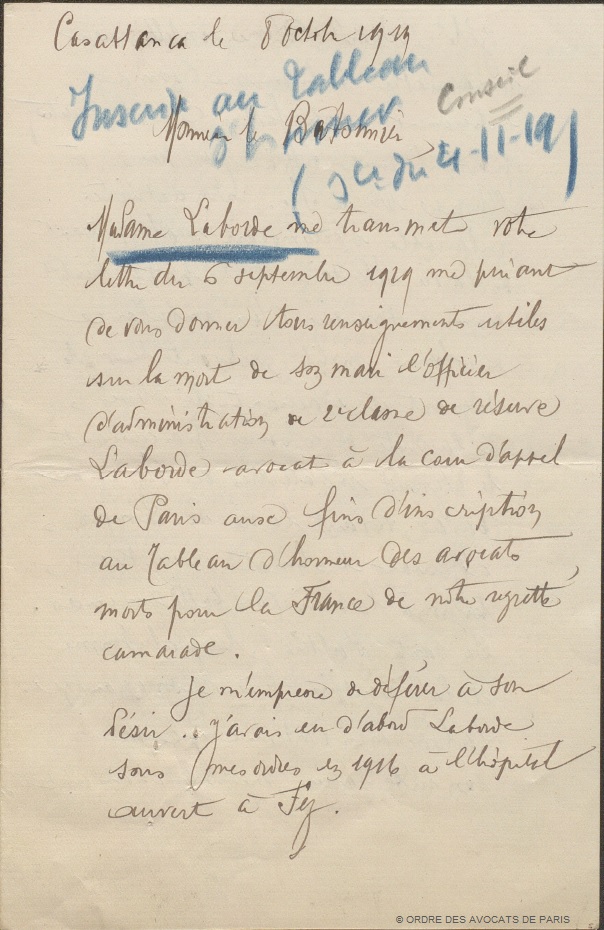 Casablanca le 8 octob 1919
Inscrit au Tableau
d'honneur
Conseil
Monsieur le Bâtonnier
(Sce du 4-11-19)
Madame Laborde me transmet votre
lettre du 6 septembre 1919 me priant
de vous donner tous renseignements utiles
sur la mort de son mari l'officier
d'administration de 2e classe de réserve
Laborde avocat à la cour d'appel
de Paris aux fins d'inscription
au Tableau d'honneur des avocats
morts pour la France de notre regretté
camarade.
Je m'empresse de déférer à son
désir. j'avais eu d'abord Laborde
sous mes ordres en 1916 à l'hôpital
ouvert à Fez.
© ORDRE DES AVOCATS DE PARIS